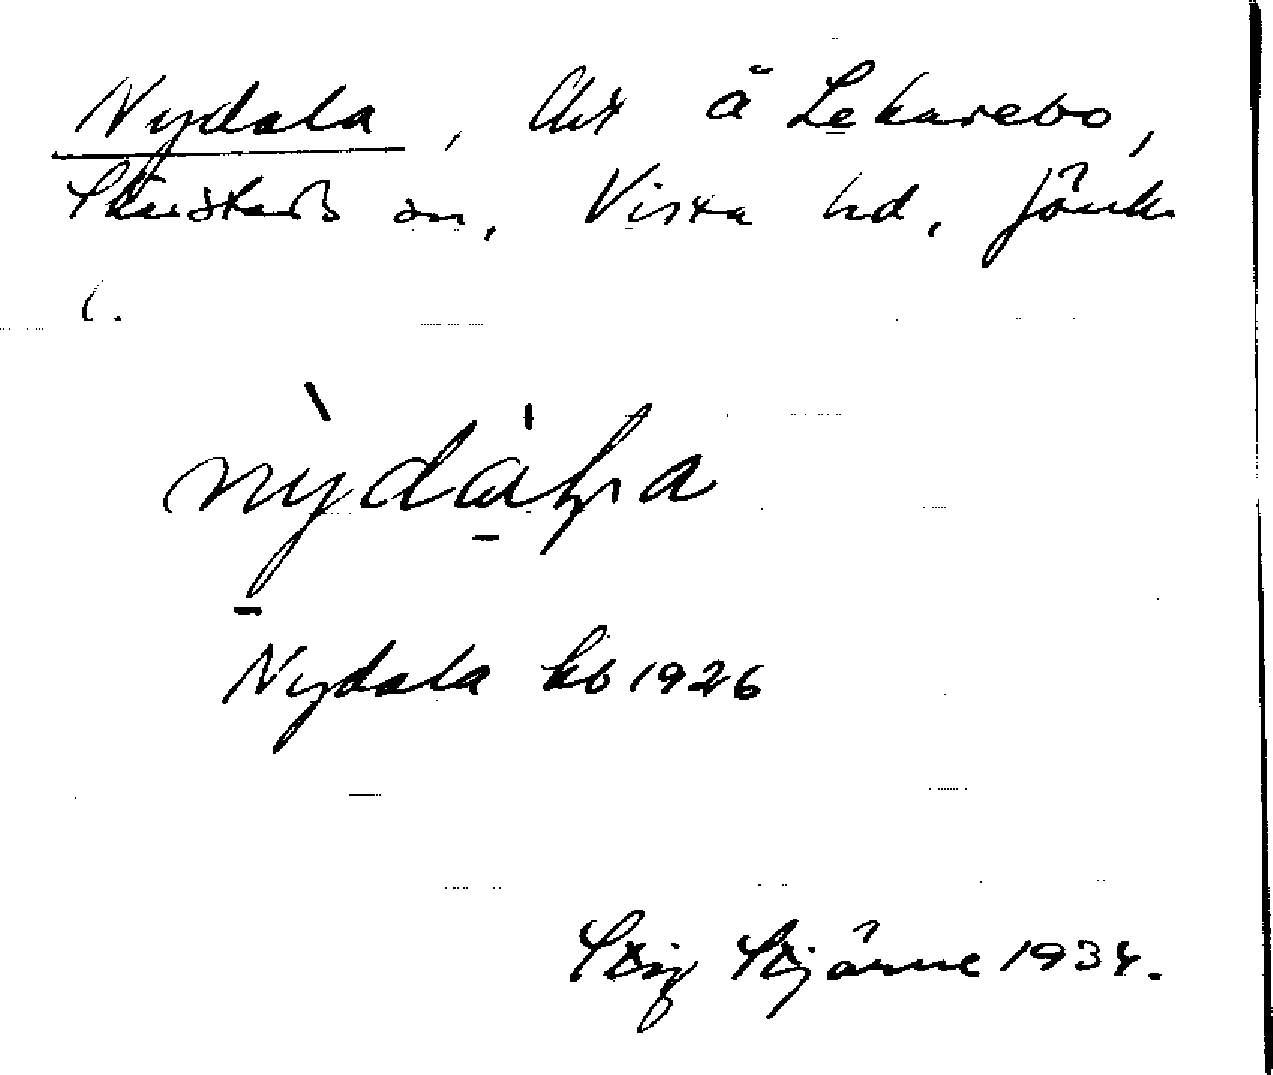 Nydala, Lht å Lekarebo,
Skärstads sn, Vista hd, Jönk.
l.
nỳdáɫa
Nydala kb 1926
Stig Stjärne 1934.